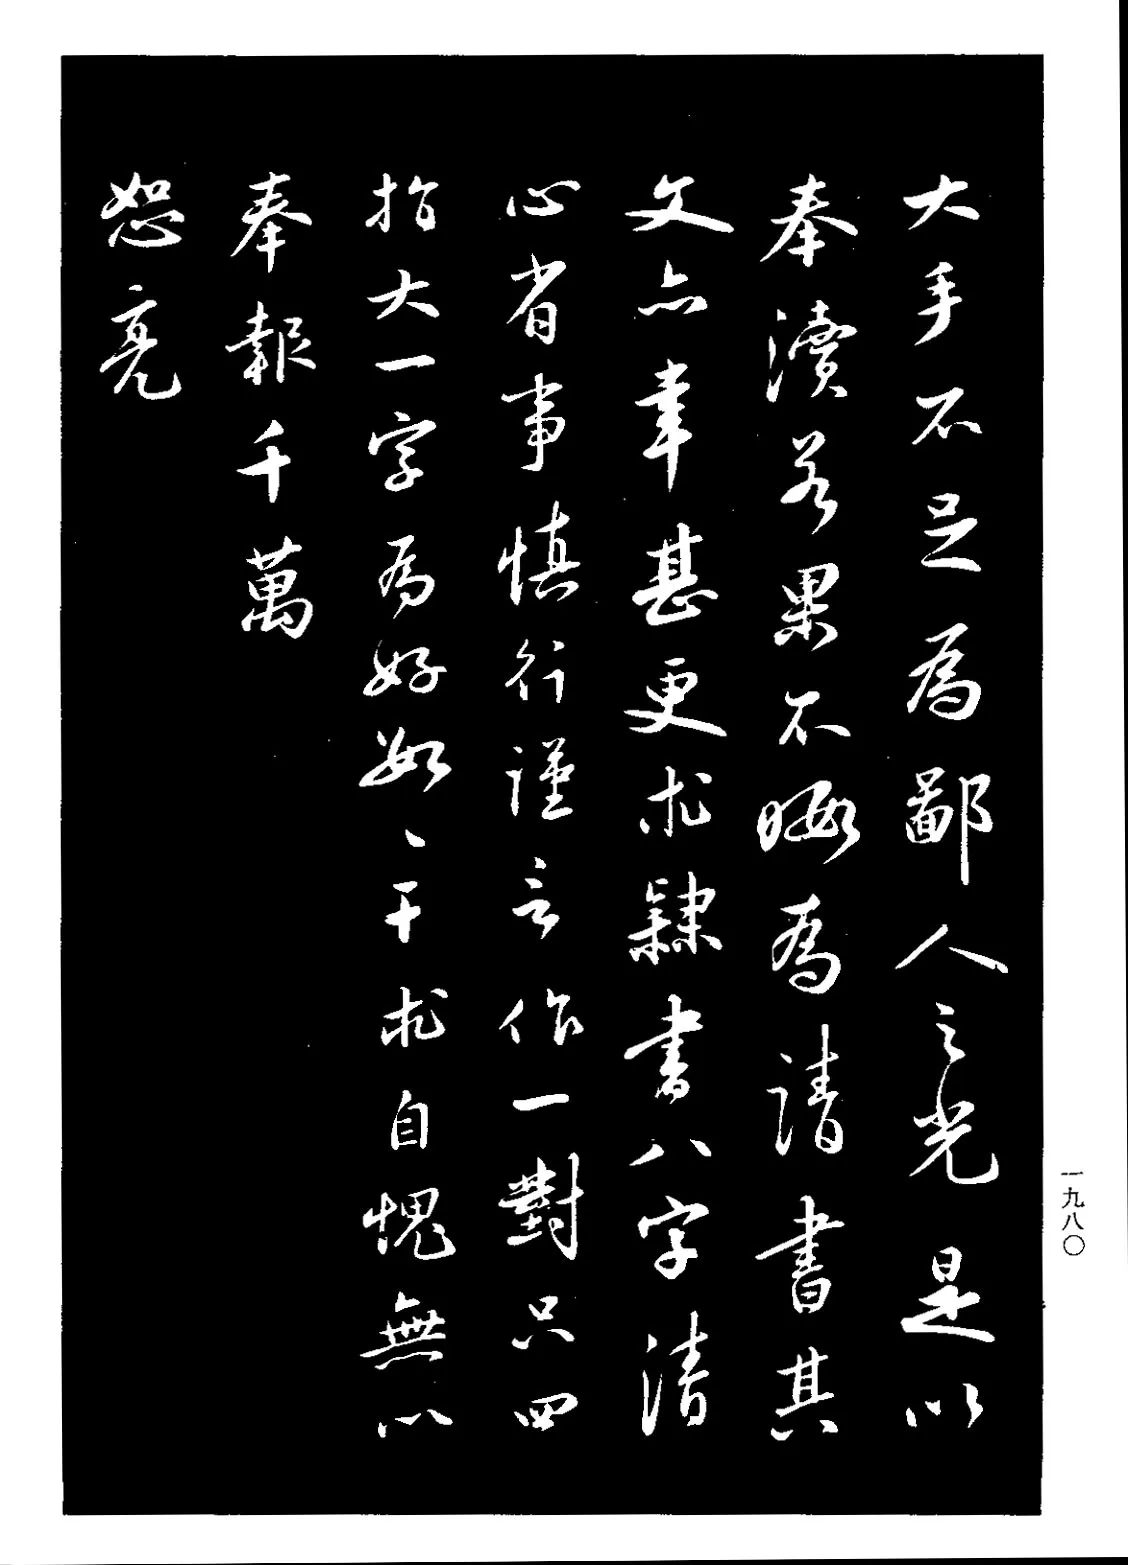 大手不足為鄙人之光是以
奉瀆若果不暇為請書其
文亦幸甚更求隸書八字清
心省事慎行謹言作一對只四
指大一字為好如々干求自愧無以
奉報千萬
恕亮
一九八〇